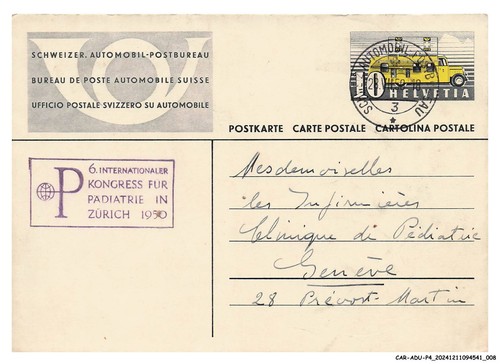 SCHWEIZER. AUTOMOBIL-POSTBUREAU
BUREAU DE POSTE AUTOMOBILE SUISSE
UFFICIO POSTALE SVIZZERO SU AUTOMOBILE
10 HELVETIA
3
POSTKARTE CARTE POSTALE CARTOLINA POSTALE
P
6. INTERNATIONALER
KONGRESS FÜR
PÄDIATRIE IN
ZÜRICH 1950
Mesdemoiselles
les Infirmières
Clinique di Pédiatrie
Genève
28 Prévost-Martin
CAR-ADU-P4_20241211094541_008